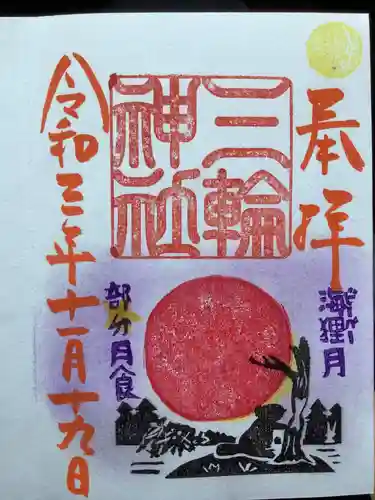 奉拝
海狸月
三輪
神社
部分月食
令和三年十一月十九日